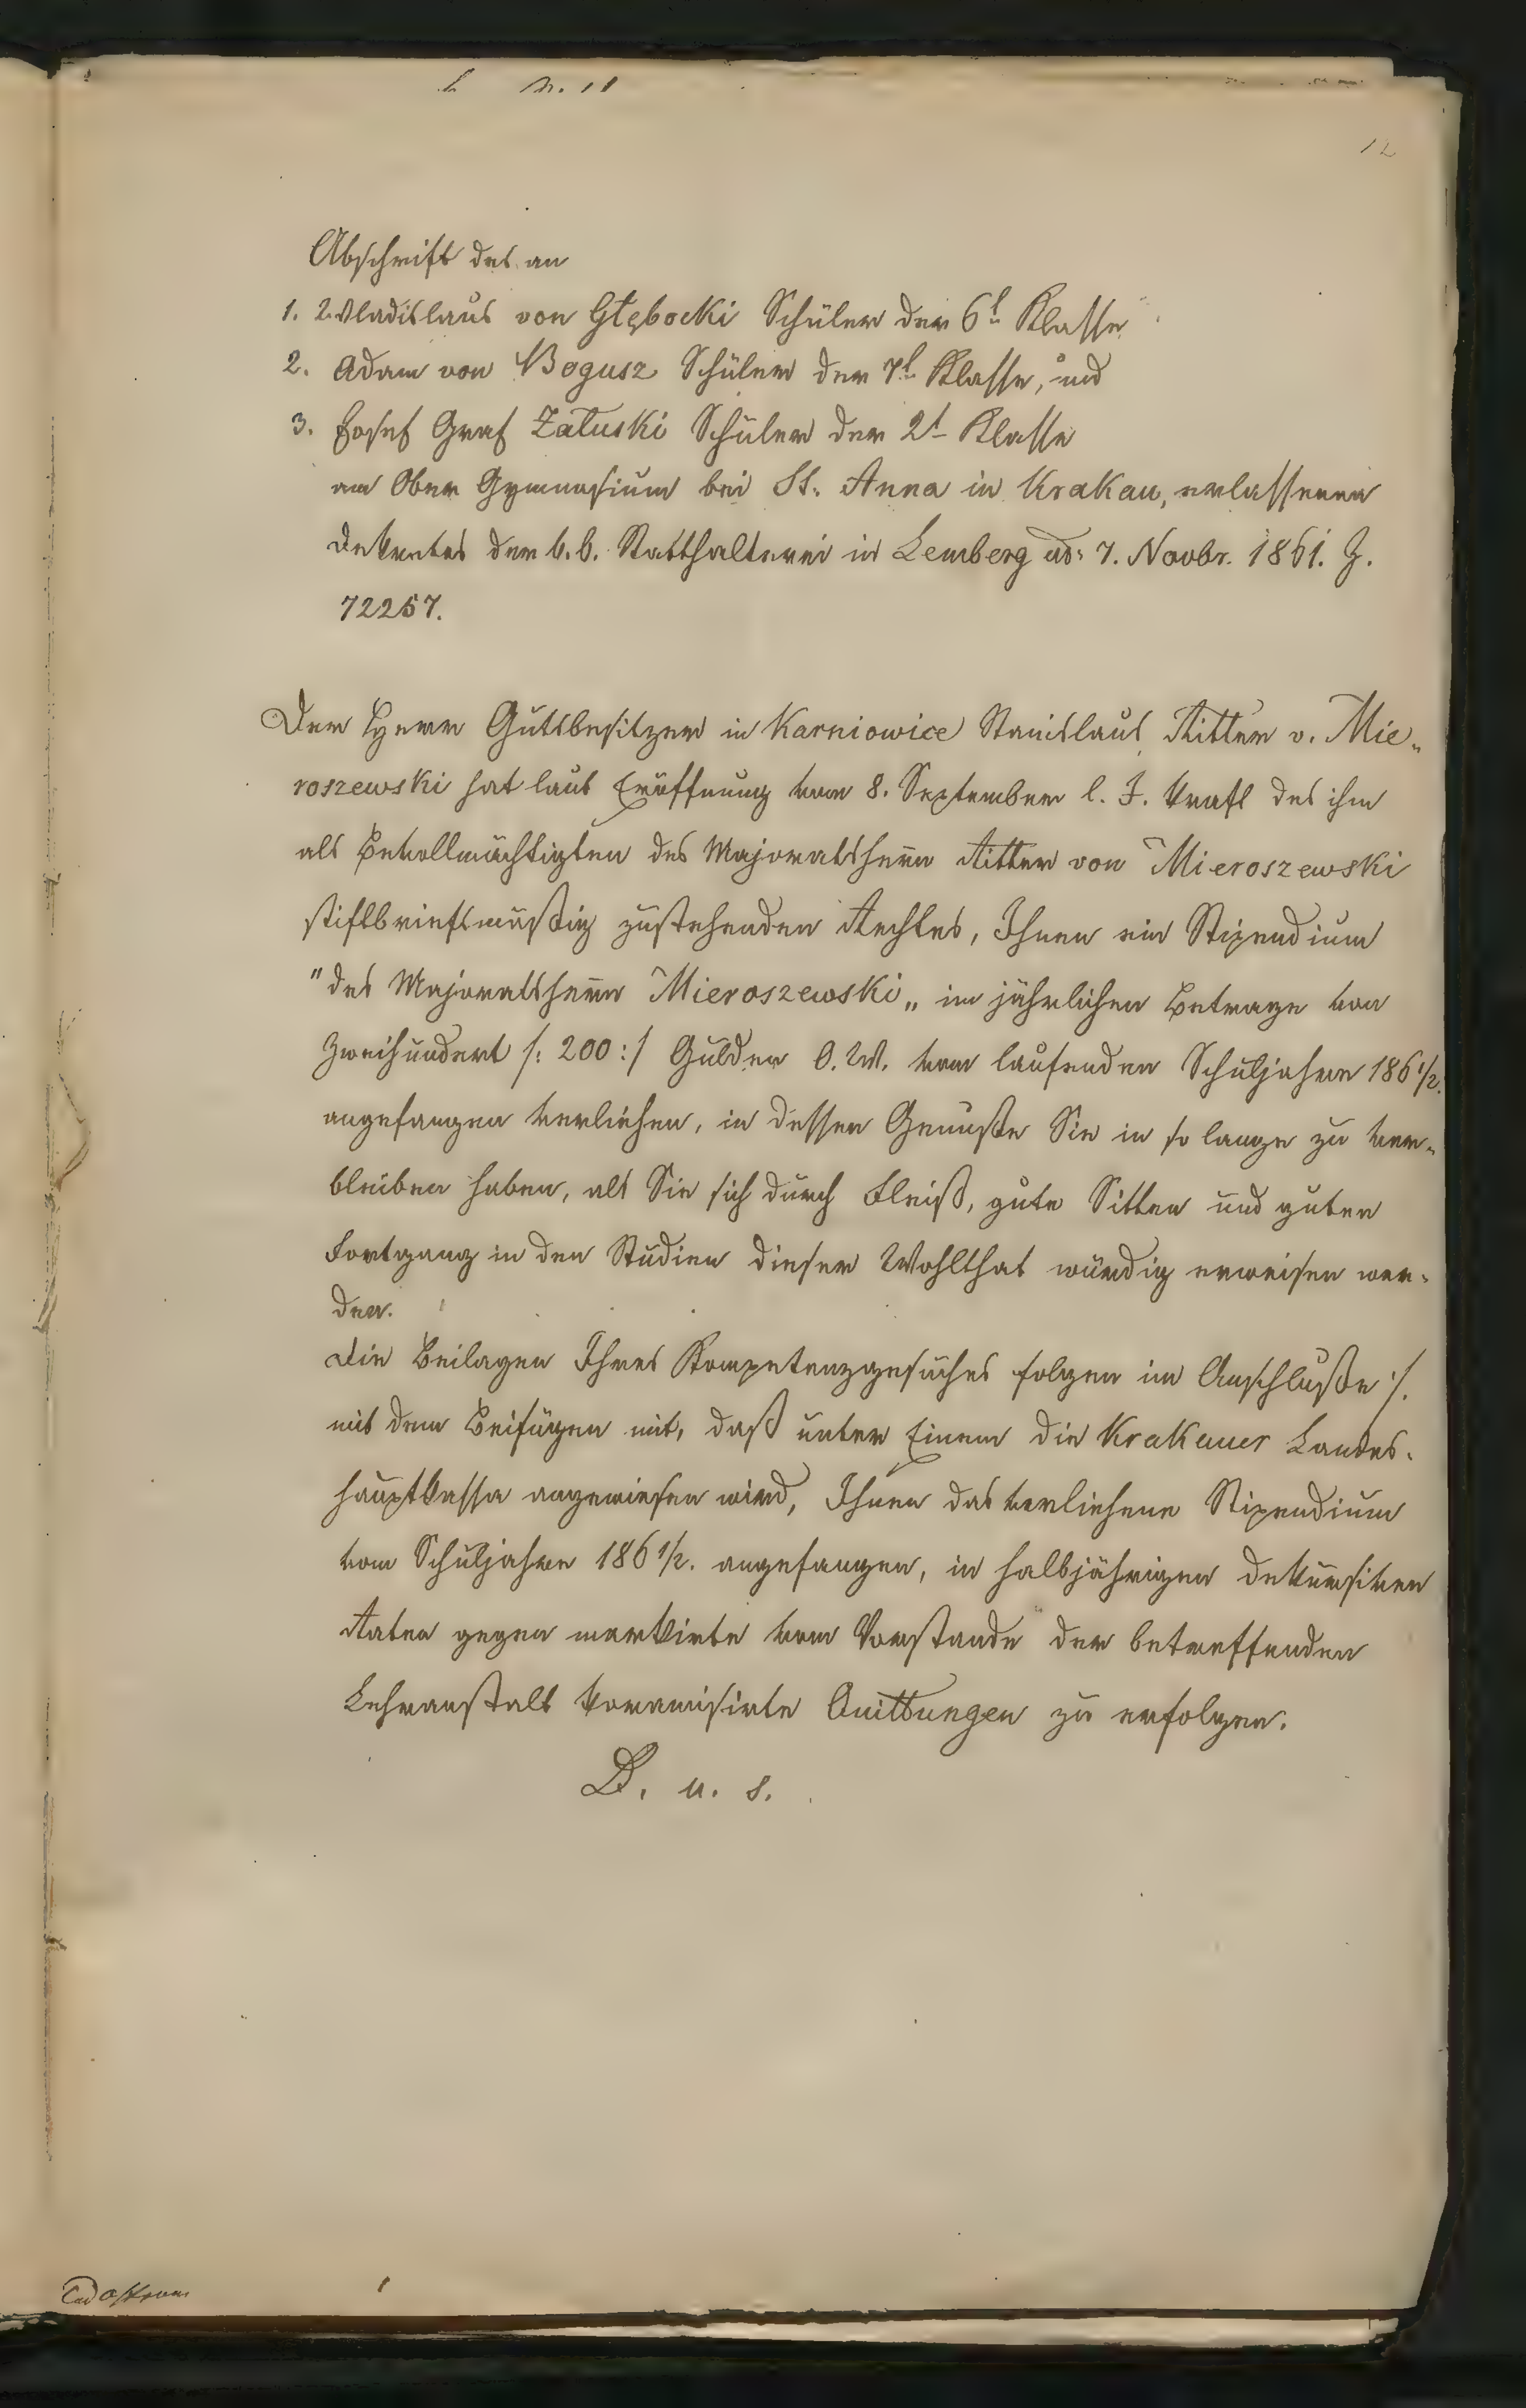 N. 11
12
Abschrift des an
1. Wladislaus von Głębocki Schüler der 6t Klasse
2. Adam von Bogusz Schüler der 7t Klasse, und
3. Josef Graf Załuski Schüler der 2t Klasse
am Ober Gymnasium bei St. Anna in Krakau, erlassenen
Dekretes der k. k. Statthalterei in Lemberg ddo 7. Novbr. 1861. Z.
72257.
Der Herr Gutsbesitzer in Karniowice Stanislaus Ritter v. Mie-
roszewski hat laut Eröffnung vom 8. September l. J. kraft des ihm
als Bevollmächtigten des Majoratsherrn Ritter von Mieroszewski
stiftbriefsmäßig zustehenden Rechtes, Ihnen ein Stipendium
"des Majoratsherrn Mieroszewski„ im jährlichen Betrage von
Zweihundert /: 200 :/ Gulden Ö. W. vom laufenden Schuljahre 186 1/2.
angefangen verliehen, in dessen Genuße Sie in so lange zu ver-
bleiben haben, als Sie sich durch Fleiß, gute Sitten und guten
Fortgang in den Studien dieser Wohlthat würdig erweisen wer-
den.
Die Beilagen Ihres Kompetenzgesuches folgen im Anschluße ·/.
mit dem Beifügen mit, daß unter Einem die Krakauer Landes-
hauptkassa angewiesen wird, Ihnen das verliehene Stipendium
vom Schuljahre 186 1/2. angefangen, in halbjährigen dekursiven
Raten gegen markirte vom Vorstande der betreffenden
Lehranstalt koramisirte Quittungen zu erfolgen.
D. u. s.